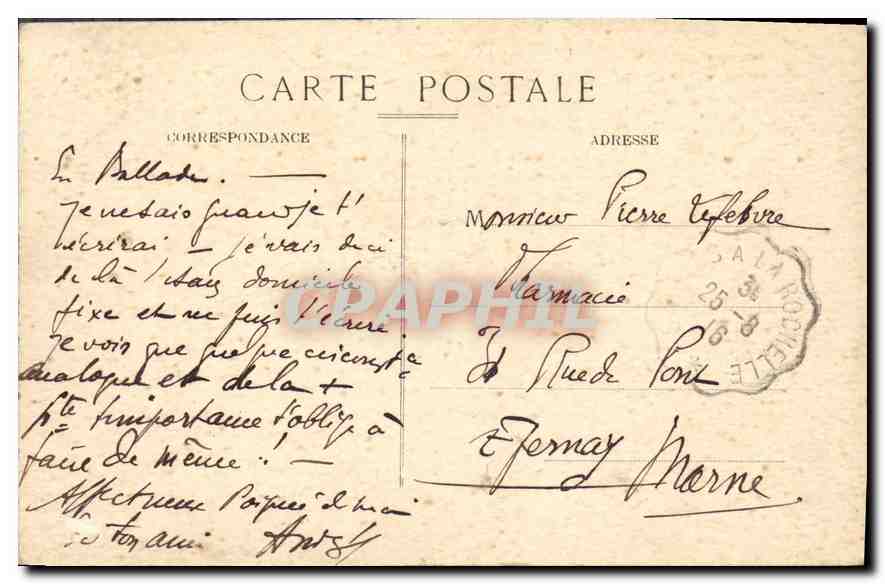 CARTE POSTALE
CORRESPONDANCE
ADRESSE
En Ballade. —
je ne sais quand je t'
écrirai — je vais de ci
de là ! sans domicile
fixe et ne puis t'écrire
je vois que que
analogue et de la +
pte importance t'oblige à
faire de même ! —
Affectueuse Poignée de main
de ton ami
Monsieur Pierre Lefebvre
Pharmacie
Rue du Pont
Epernay
Marne
S A LA ROCHELLE
25 -8
CPAPHIL